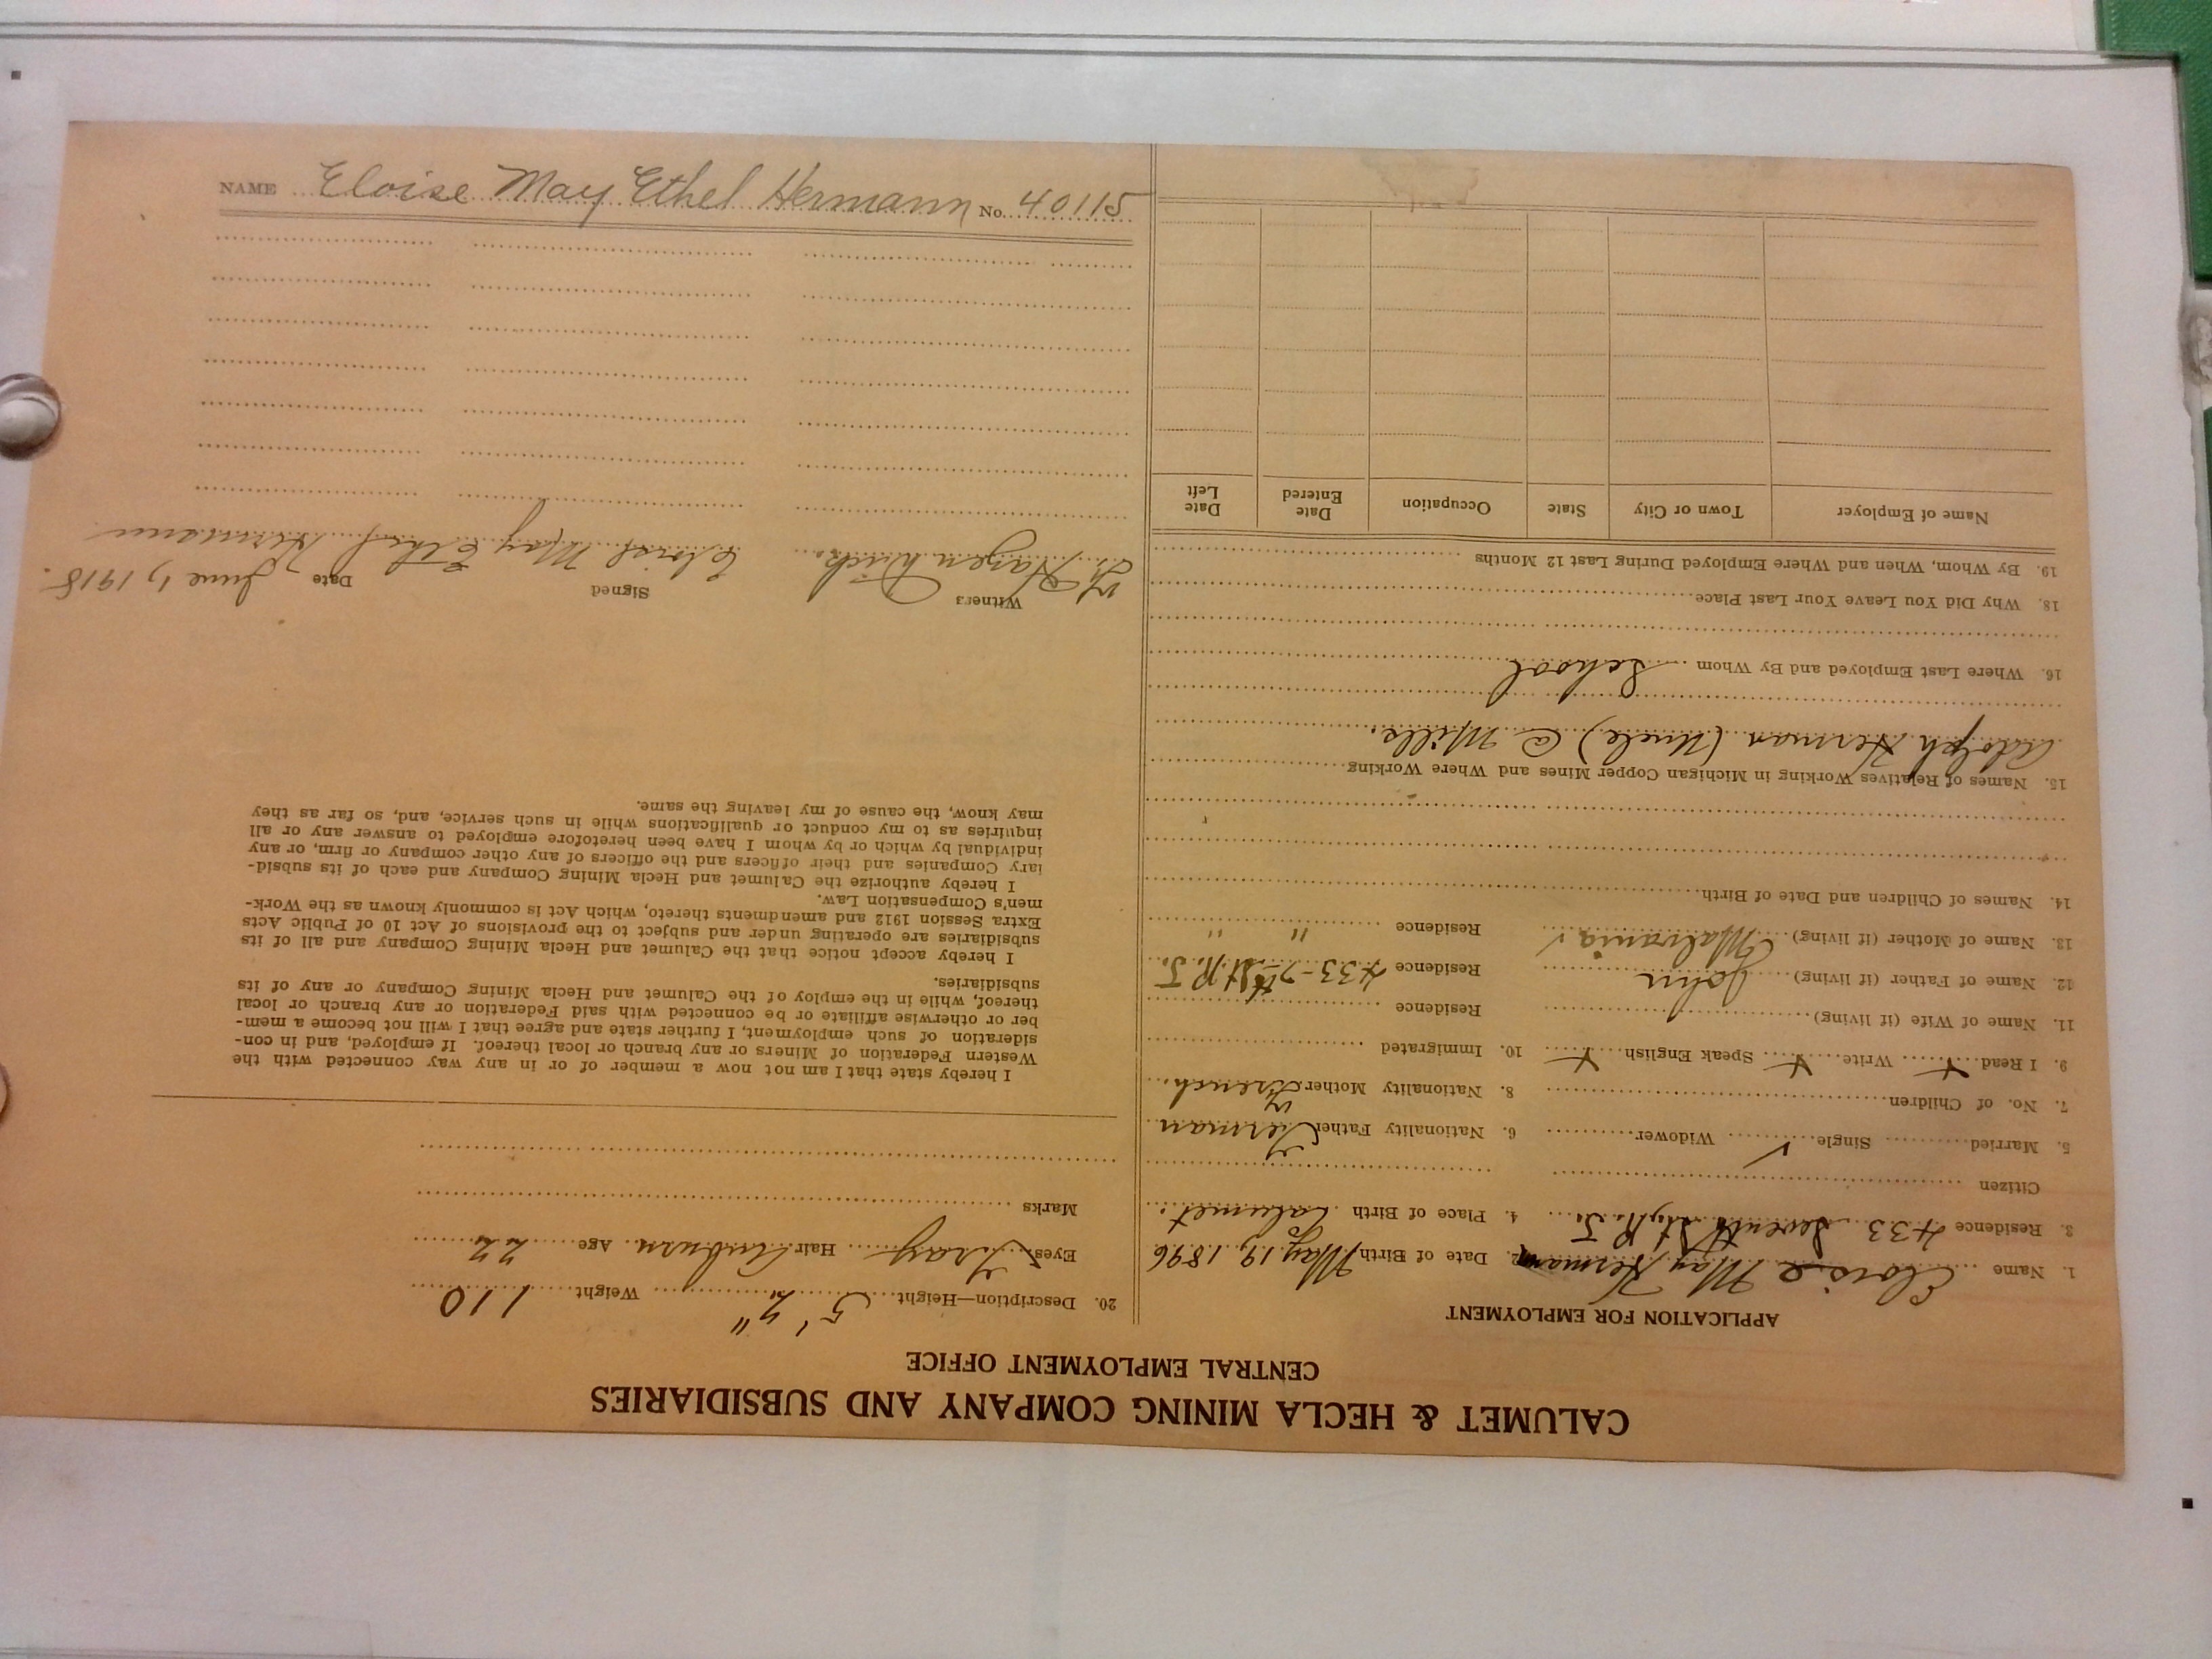 NAME Eloise May Ethel Hermann No. 40115
CALUMET & HECLA MINING COMPANY AND SUBSIDIARIES
CENTRAL EMPLOYMENT OFFICE
APPLICATION FOR EMPLOYMENT
1. Name Eloise May Hermann 2. Date of Birth May 19, 1896
3. Residence 433 Seventh St. R. J. 4. Place of Birth Calumet.
Citizen
5. Married Single ✓ Widower 6. Nationality Father German
7. No. of Children 8. Nationality Mother French.
9. I Read x Write x Speak English x 10. Immigrated
11. Name of Wife (if living) Residence
12. Name of Father (if living) John Residence 433-7th St R. J.
13. Name of Mother (if living) Residence " "
14. Names of Children and Date of Birth
15. Names of Relatives Working in Michigan Copper Mines and Where Working
Adolph Herman (Uncle) @ Mills.
16. Where Last Employed and By Whom School
18. Why Did You Leave Your Last Place
19. By Whom, When and Where Employed During Last 12 Months
Name of Employer Town or City State Occupation Date Entered Date Left
20. Description—Height 5' 2" Weight 110
Eyes Gray Hair Auburn Age 22
Marks
I hereby state that I am not now a member of or in any way connected with the
Western Federation of Miners or any branch or local thereof. If employed, and in con-
sideration of such employment, I further state and agree that I will not become a mem-
ber or otherwise affiliate or be connected with said Federation or any branch or local
thereof, while in the employ of the Calumet and Hecla Mining Company or any of its
subsidiaries.
I hereby accept notice that the Calumet and Hecla Mining Company and all of its
subsidiaries are operating under and subject to the provisions of Act 10 of Public Acts
Extra Session 1912 and amendments thereto, which Act is commonly known as the Work-
men's Compensation Law.
I hereby authorize the Calumet and Hecla Mining Company and each of its subsid-
iary Companies and their officers and the officers of any other company or firm, or any
individual by which or by whom I have been heretofore employed to answer any or all
inquiries as to my conduct or qualifications while in such service, and, so far as they
may know, the cause of my leaving the same.
Witness Signed Date June 1, 1918.
Hazen Eloise May Ethel Hermann